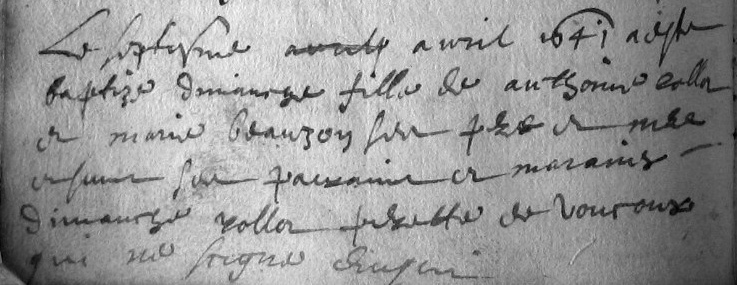 Le septiesme avril 1641 a este
baptize dimanche fille de anthoine collor
et marie beauzon ses pere et mere
et sont ses parrains et maraines
dimanche collor de
qui ne signe